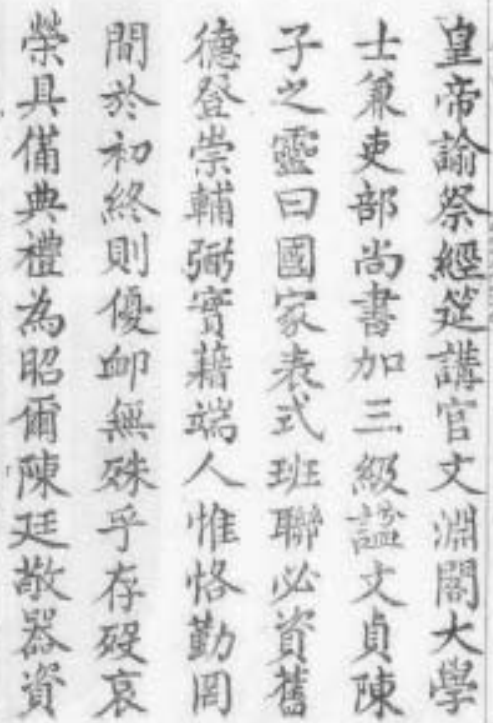 皇帝諭祭經筵講官文淵閣大學
士兼吏部尚書加三級謚文貞陳
子之靈曰國家表式班聯必資舊
德登崇輔弼實藉端人惟恪勤罔
間於初終則優卹無殊乎存歿哀
榮具備典禮為昭爾陳廷敬器資